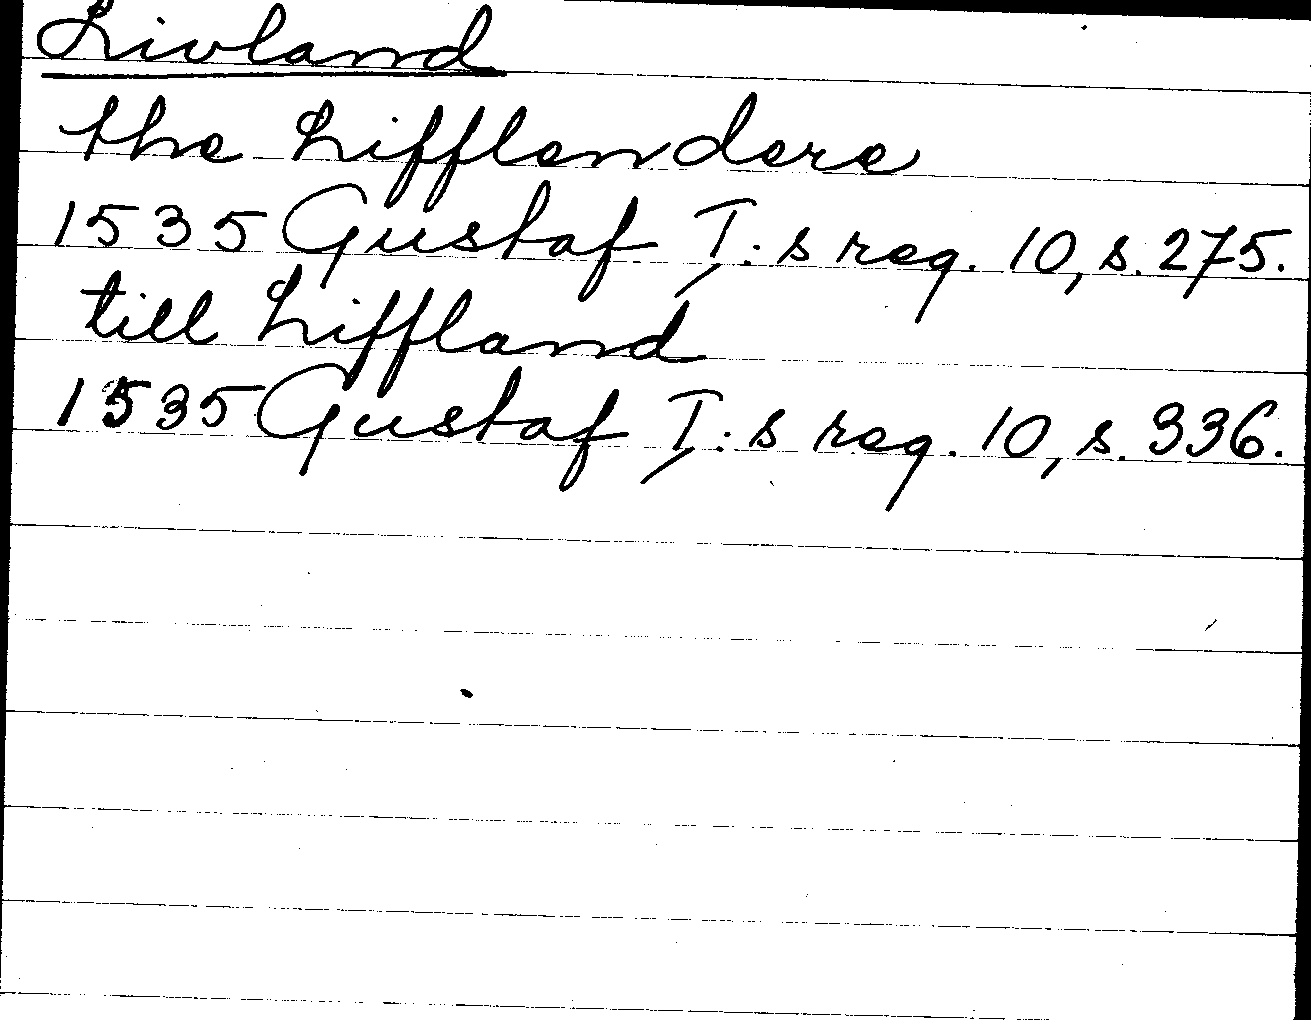 Livland
the Lifflendere
1535 Gustaf I:s reg. 10, s. 275.
till Liffland
1535 Gustaf I:s reg. 10, s. 336.